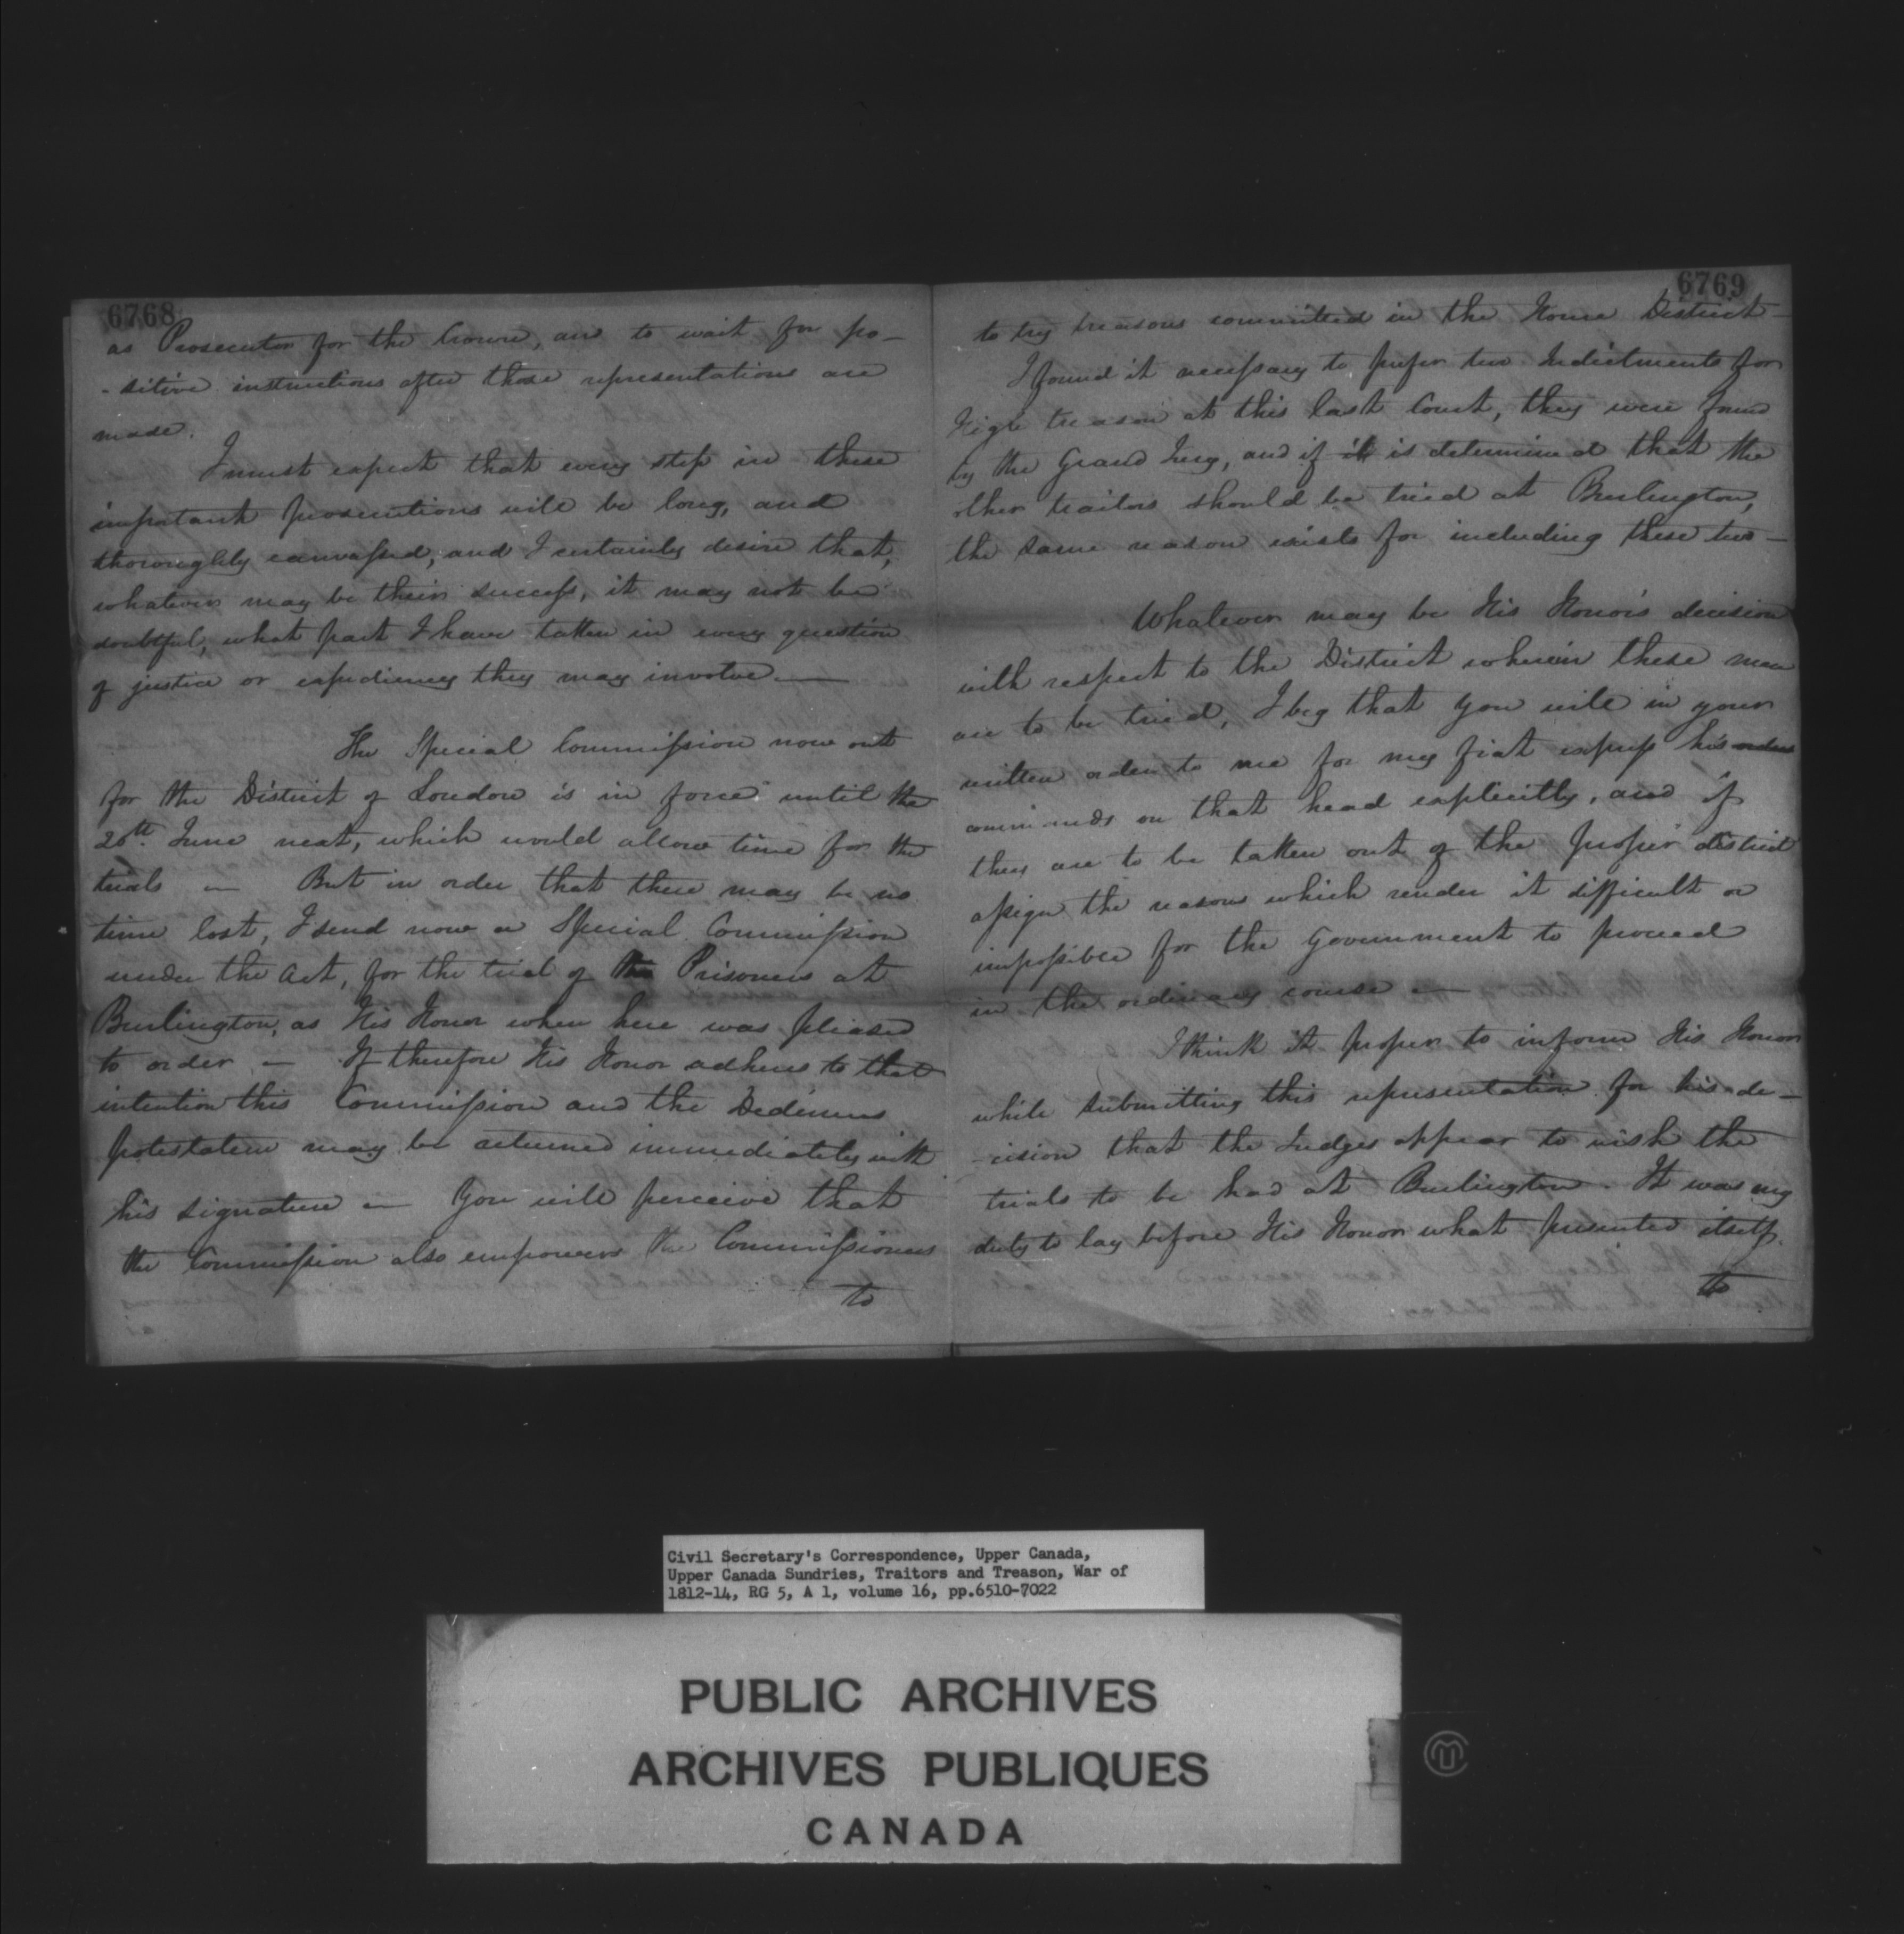 6768
as Prosecutor for the Crown, and to wait for po-
-sitive instructions after those representations are
made.
I must expect that every step in these
important prosecutions will be long, and
thoroughly canvassed, and I certainly desire that,
whatever may be their success, it may not be
doubtful, what part I have taken in every question
of justice or expediency they may involve. —
The Special Commission now out
for the District of London is in force until the
20th. June next, which would allow time for the
trials — But in order that there may be no
time lost, I send now a Special Commission
under the Act, for the trial of the Prisoners at
Burlington, as His Honor when here was pleased
to order — If therefore His Honor adheres to that
intention this Commission and the Dedimus
protestatem may be returned immediately with
his signature — You will perceive that
the Commission also empowers the Commissioners
to
6769
to try treasons committed in the Home District —
I found it necessary to prefer two Indictments for
High treason at this last Court, they were found
by the Grand Jury, and if it is determined that the
other traitors should be tried at Burlington,
the same reason exists for including these two —
Whatever may be His Honor's decision
with respect to the District wherein these men
are to be tried, I beg that you will in your
written order to me for my fiat express his orders
commands on that head explicitly, and if
they are to be taken out of the proper district
assign the reasons which render it difficult or
impossible for the Government to proceed
in the ordinary course —
I think it proper to inform His Honor
while submitting this representation for his de-
-cision that the Judges appear to wish the
trials to be had at Burlington. It was my
duty to lay before His Honor what presented itself
to
Civil Secretary's Correspondence, Upper Canada,
Upper Canada Sundries, Traitors and Treason, War of
1812-14, RG 5, A 1, volume 16, pp.6510-7022
PUBLIC ARCHIVES
ARCHIVES PUBLIQUES
CANADA